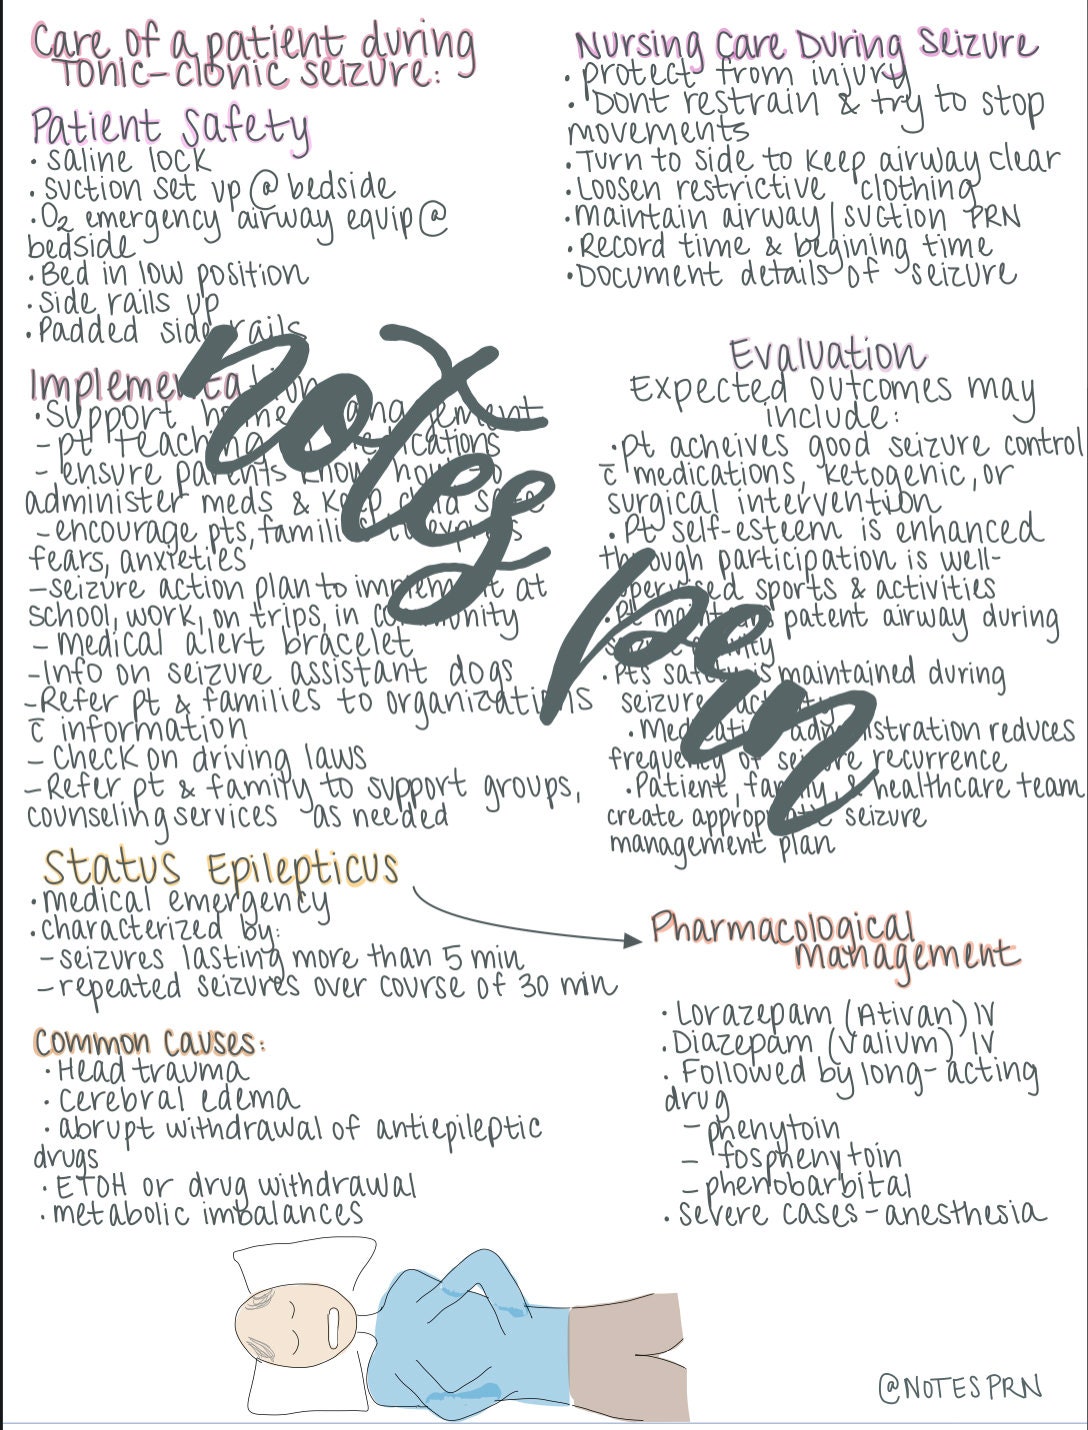 Care of a patient during
Tonic-clonic seizure:
Patient Safety
• saline lock
• suction set up @ bedside
• O2 emergency airway equip @
bedside
• Bed in low position
• Side rails up
• Padded side rails
Implementation
• Support home management
- pt teaching
- ensure parents know how to
administer meds & keep child safe
- encourage pts, families to express
fears, anxieties
- seizure action plan to implement at
school, work, on trips, in community
- medical alert bracelet
- Info on seizure assistant dogs
- Refer pt & families to organizations
c̄ information
- check on driving laws
- Refer pt & family to support groups,
counseling services as needed
Status Epilepticus
• medical emergency
• characterized by:
- seizures lasting more than 5 min
- repeated seizures over course of 30 min
Common Causes:
• Head trauma
• cerebral edema
• abrupt withdrawal of antiepileptic
drugs
• ETOH or drug withdrawal
• metabolic imbalances
Nursing Care During Seizure
• protect from injury
• Dont restrain & try to stop
movements
• Turn to side to keep airway clear
• Loosen restrictive clothing
• maintain airway | suction PRN
• Record time & begining time
• Document details of seizure
Evaluation
Expected outcomes may
include:
• pt acheives good seizure control
c̄ medications, ketogenic, or
surgical intervention
• Pt self-esteem is enhanced
through participation is well-
supervised sports & activities
• Pt maintains patent airway during
seizure activity
• Pts safety is maintained during
seizure activity
• Medication administration reduces
frequency of seizure recurrence
• Patient, family, & healthcare team
create appropriate seizure
management plan
Pharmacological
management
• Lorazepam (Ativan) IV
• Diazepam (Valium) IV
• Followed by long-acting
drug
- phenytoin
- fosphenytoin
- phenobarbital
• severe cases - anesthesia
notes
prn
@NOTESPRN